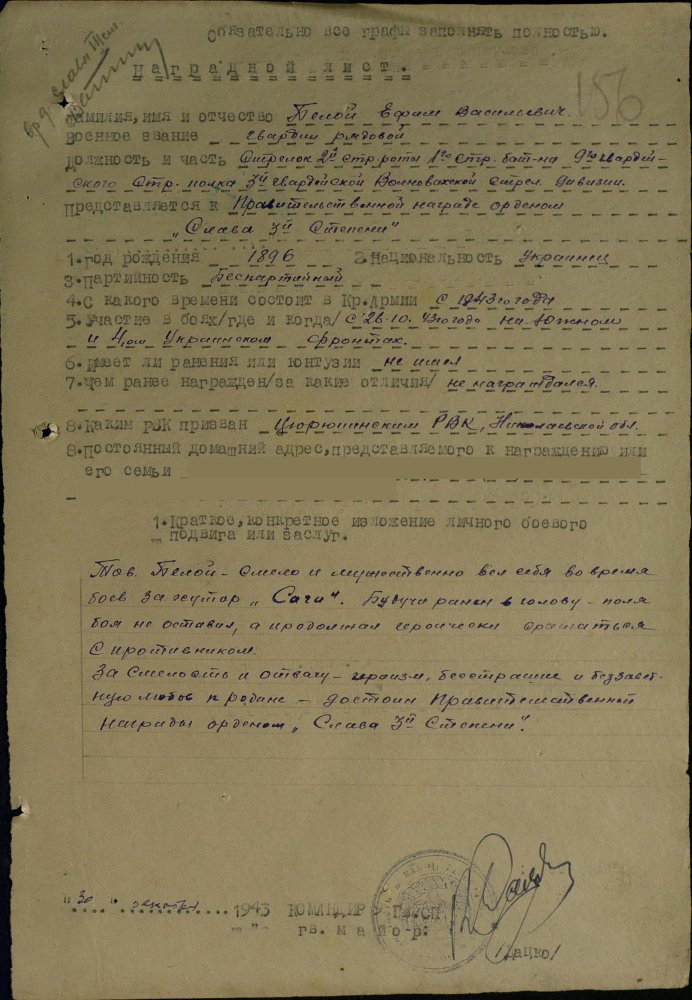 Обязательно все графы заполнять полностью.
Наградной лист.
156
Фамилия, имя и отчество Пелой Ефим Васильевич.
Военное звание гвардии рядовой
Должность и часть Стрелок 2й стр. роты 1го Стр. бат-на 9го гвардей-
ского Стр. полка 3й гвардейской Волновахской Стрел. дивизии.
Представляется к Правительственной награде орденом
"Слава 3й Степени"
1. Год рождения 1896 2. Национальность Украинец
3. Партийность Беспартийный
4. С какого времени состоит в Кр. Армии с 1943го года
5. Участие в боях /где и когда/ с 26.10. 43го года на Южном
и 4ом Украинском фронтах.
6. Имеет ли ранения или контузии не имел
7. Чем ранее награжден /за какие отличия/ не награждался.
8. Каким РВК призван Цюрюпинским РВК, Николаевской обл.
8. Постоянный домашний адрес, представляемого к награждению или
его семьи
1. Краткое, конкретное изложение личного боевого
подвига или заслуг.
Тов. Пелой - смело и мужественно вел себя во время
боев за хутор "Саги". Будучи ранен в голову - поля
боя не оставил, а продолжал героически сражаться
с противником.
За смелость и отвагу - героизм, бесстрашие и беззавет-
ную любов к родине - достоин Правительственной
награды орденом "Слава 3й Степени".
"30" декабря 1943 КОМАНДИР 9 Гв. СП
гв. майор:
/Дацко/